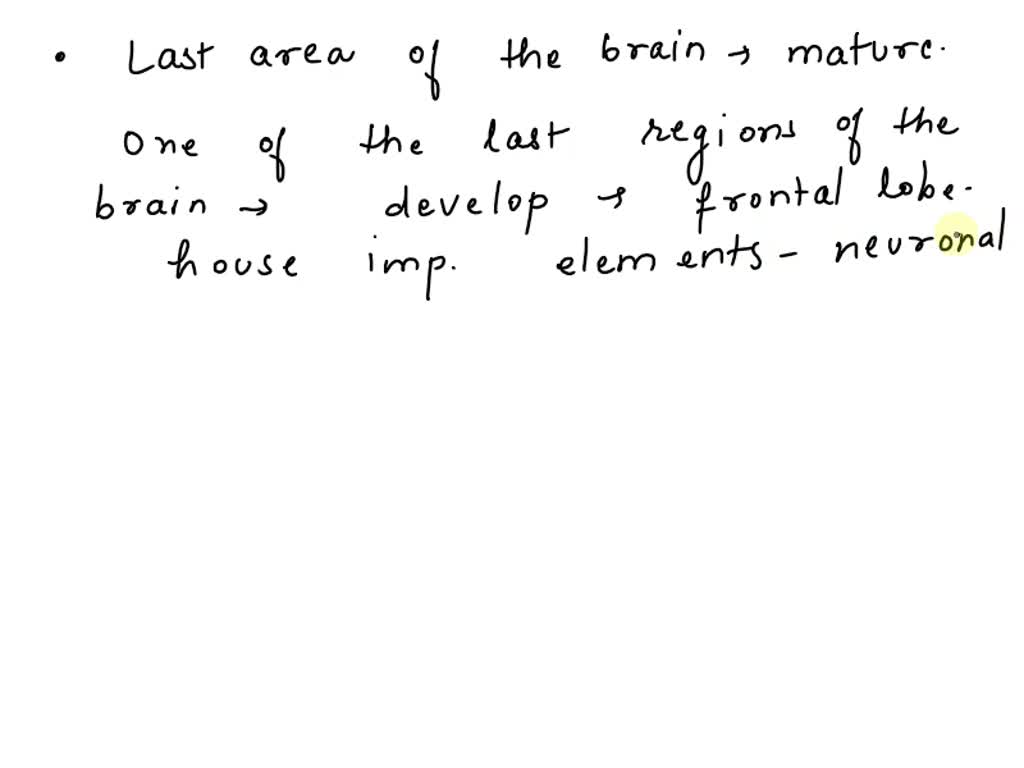 • Last area of the brain → mature.
One of the last regions of the
brain → develop → frontal lobe.
house imp. elements - neuronal